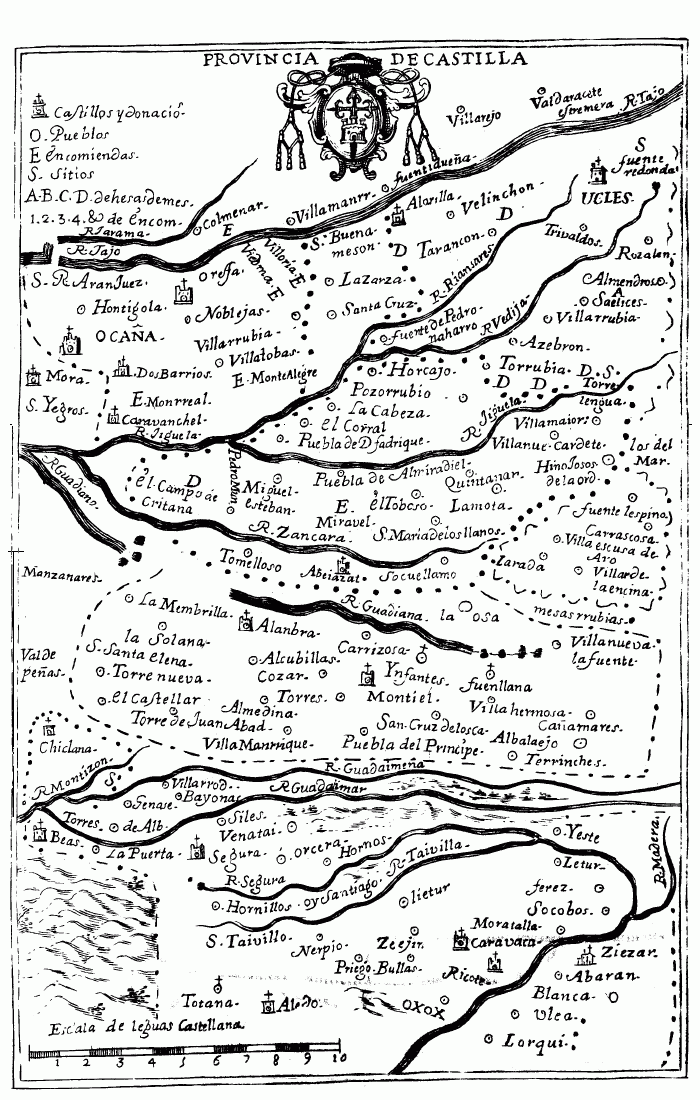 PROVINCIA DE CASTILLA
Castillos y donació-
O. Pueblos
E encomiendas.
S. Sitios
A.B.C.D. dehesas demes.
1.2.3.4.& de encom-
Villarejo
Valdaracete
estremera
R. Tajo
fuentidueña
S
fuente
redonda
UCLES.
Colmenar.
E
Villamanrr.
Alarilla.
Velinchon.
D
R. Jarama.
R. Tajo
Viloria. E
Viedma. E
S. Buena
meson.
D
Tarancon
Trivaldos.
Rozalen
S. R. Aranjuez.
Oreja
Lazarza
R. Riansares
Almendros
A
Saelices
Hontigola.
Noblejas.
Santa Cruz
fuente de Pedro-
naharro
R. Vedija
Villarrubia
OCAÑA
Villarrubia
Villatobas.
Azebron.
Mora.
Dos Barrios.
E. Monte Alegre
Horcajo.
Torrubia
D. S.
D
D
Torre
lengua.
S. Yegros.
E. Monrreal
Caravanchel.
R. Jiguela.
Pozorrubio
La Cabeza.
el Corral
Puebla de D fadrique.
R. Jiguela
Villamaior
Villanue. Cardete.
los del
Mar.
R. Guadiana
D
el Campo de
Critana
Pedro Mun
Miguel
esteban.
Puebla de Almiradiel.
Quintanar.
Hinojosos
de la ord.
E.
Miravel
el Toboso
Lamota.
fuente lespina
R. Zancara.
S. Maria de los llanos.
Carrascosa
Villaescusa de
Aro
Manzanares.
Tomelloso
Abeiazat
Socuellamo
Zarada
Villar de
la encina.
mesas rrubias.
La Membrilla.
Alanbra.
R. Guadiana
la Osa
Villanueva
la fuente
la Solana
S. Santa elena
Valde
peñas.
Torre nueva.
Alcubillas.
Cozar.
Carrizosa
Ynfantes
Montiel.
fuenllana
el Castellar
Torre de Juan Abad.
Almedina.
Torres.
Villa hermosa.
Chiclana.
Villa Manrrique
San Cruz de losca.
Puebla del Principe.
Cañamares.
Albalaejo
Terrinches.
R. Montizon.
S.
R. Guadalmeña
R. Guadalmar
Villarrod.
Bayona.
Genase.
Torres.
de Alb.
Siles.
Venatai.
Beas.
La Puerta.
Segura.
Orcera.
Hornos.
R. Taivilla
Yeste
Letur.
R. Madera.
R. Segura
Hornillos. oy Santiago.
lietur
ferez.
Socobos.
S. Taivillo.
Nerpio.
Zeejir.
Moratalla.
Caravaca
Priego. Bullas.
Ricote
Ziezar.
Abaran
Blanca.
Totana
Aledo
OXOX
Ulea.
Lorqui.
Escala de leguas Castellana
1 2 3 4 5 6 7 8 9 10